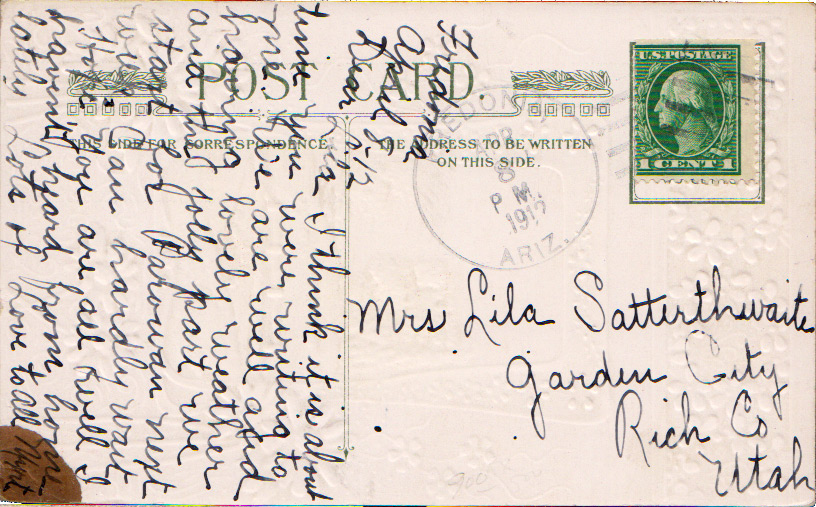 POST CARD
THIS SIDE FOR CORRESPONDENCE.
THE ADDRESS TO BE WRITTEN
ON THIS SIDE.
U.S. POSTAGE
1 CENT 1
FREDONIA
APR
8
P M.
1912
ARIZ.
Fredonia
April 8-12
Dear Lila I think it is about
time you were writing to
me. We are well and
having lovely weather
and the jolly part we
start for Parowan next
week. Can hardly wait
Hope you are all well I
haven't heard from home
lately Lots of Love to all
Mrs Lila Satterthwaite
Garden City
Rich Co
Utah
900